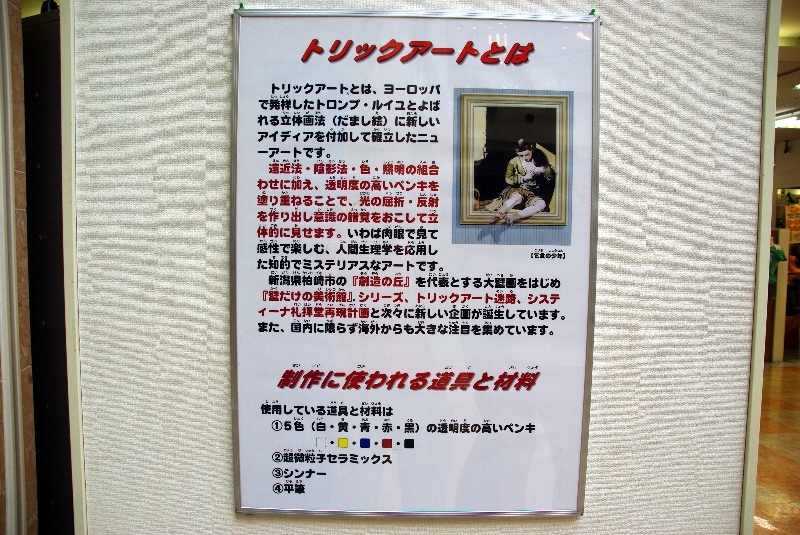 トリックアートとは
トリックアートとは、ヨーロッパ
で発祥したトロンプ・ルイユとよば
れる立体画法（だまし絵）に新しい
アイディアを付加して確立したニュ
ーアートです。
遠近法・陰影法・色・照明の組合
わせに加え、透明度の高いペンキを
塗り重ねることで、光の屈折・反射
を作り出し意識の錯覚をおこして立
体的に見せます。いわば肉眼で見て
感性で楽しむ、人間生理学を応用し
た知的でミステリアスなアートです。
新潟県柏崎市の『創造の丘』を代表とする大壁画をはじめ
『壁だけの美術館』シリーズ、トリックアート迷路、システ
ィーナ礼拝堂再現計画と次々に新しい企画が誕生しています。
また、国内に限らず海外からも大きな注目を集めています。
【乞食の少年】
制作に使われる道具と材料
使用している道具と材料は
①５色（白・黄・青・赤・黒）の透明度の高いペンキ
②超微粒子セラミックス
③シンナー
④平筆